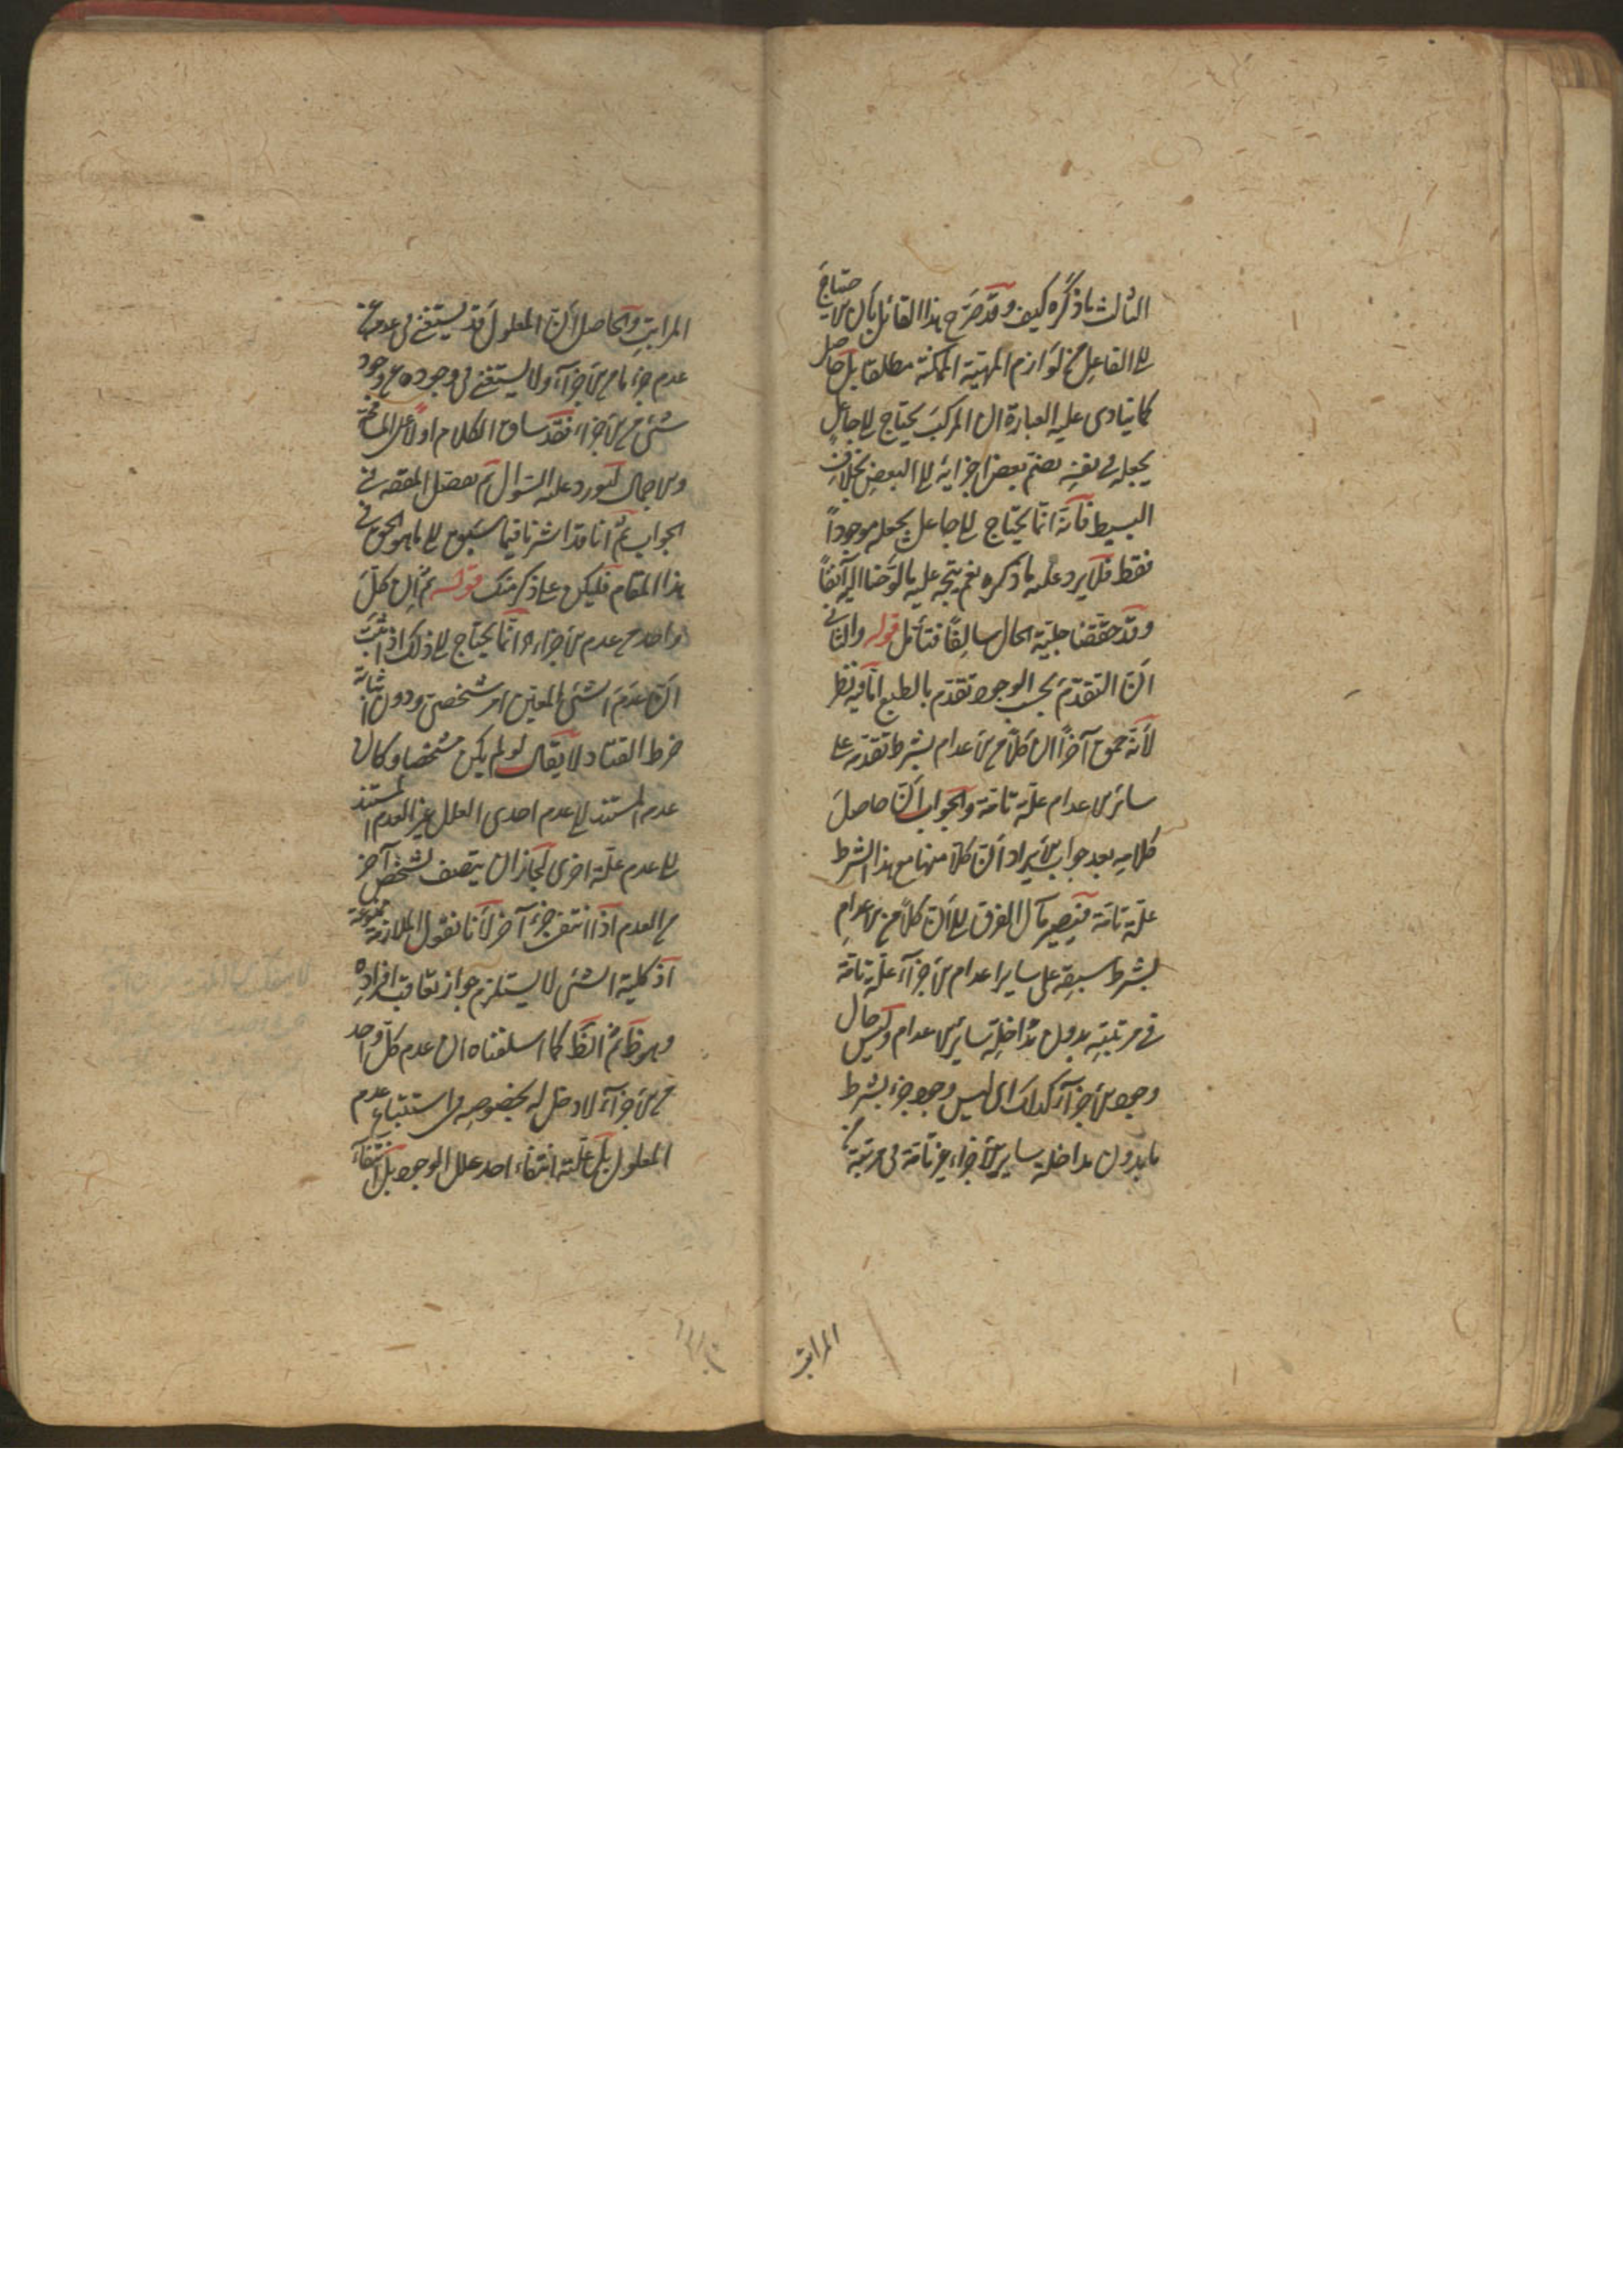 الثالث ما ذكره كيف وقد صرح هذا القائل بان الاحتياج
الى الفاعل من لوازم المهية الممكنة مطلقا بل حاصل
كما ينادى عليه العبارة ان المركب يحتاج الى جاعل
يجعله فى نفسه بضم بعض اجزائه الى البعض بخلاف
البسيط فانه انما يحتاج الى جاعل يجعله موجوداً
فقط فلا يرد عليه ما ذكره نعم يتجه عليه ما لوّحنا اليه آنفاً
وقد حققنا جلية الحال سالفاً فتأمل قوله والثانى
انّ التقدّم بحسب الوجود تقدّم بالطبع انّا فيه نظر
لأنه جموح آخراً ان كلاً من الاعدام بشرط تقدّمه على
سائر الاعدام علّة تامّة والجواب انّ حاصل
كلامه بعد جواب الايراد انّ كلاً منها مع هذا الشرط
علّة تامّة فيصير مآل الفرق الى انّ كلاً من الاعدام
بشرط سبقه على سایر اعدام الاجزاء علّة تامّة
فى مرتبته بدون مداخلة سائر الاعدام وليس حال
وجود الاجزاء كذلك اى ليس وجود جزء بشرط
ما بدون مداخلة ساير الاجزاء غير تامة فى مرتبة
المراتب
المراتب والحاصل انّ المعلول قد يستغنى فى عدمه عن
عدم جزء ما من الاجزاء ولا يستغنى فى وجوده عن وجود
شئ من الاجزاء فقد ساق الكلام اولاً على
والاجمال ليورد عليه السّوال ثم يفصل المقصد فى
الجواب ثم انا قد اشرنا فيما سبق الى ما هو الحق فى
هذا المقام فليكن على ذكر منك قوله ثم ان كلّ
واحد من عدم الاجزاء وانما يحتاج الى ذلك اذا ثبت
انّ عدم الشئ المعين امر شخصى ودون اثباته
خرط القتاد لا يقال لو لم يكن شخصا وكان
عدم المستند الى عدم احدى العلل غير العدم المستند
الى عدم علّة اخرى لجاز ان يتصف لشخص آخر
من العدم اذا انتفى جزء آخر لأنا نقول الملازمة ممنوعة
اذ كلية الشئ لا يستلزم جواز تعاقب افراده
وهو ظ ثم الظ كما اسلفناه ان عدم كل واحد
من الاجزاء لا دخل له بخصوصه فى استتباع عدم
المعلول بل علّته انتفاء احد علل الوجود بل انتفاء